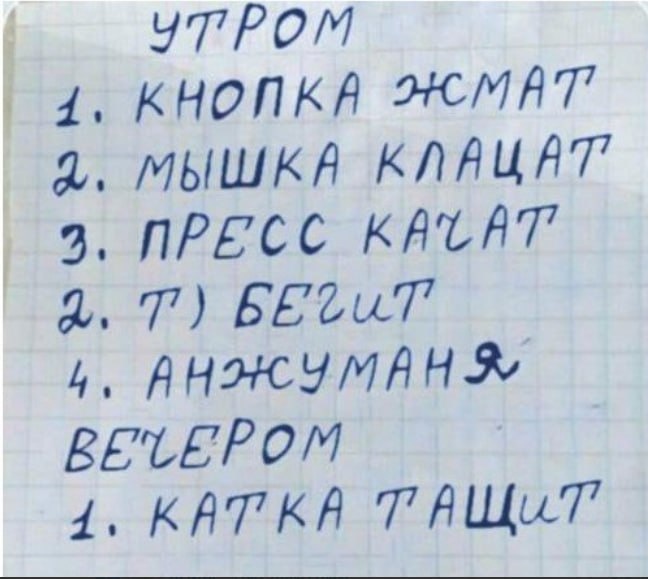 УТРОМ
1. КНОПКА ЖМАТ
2. МЫШКА КЛАЦАТ
3. ПРЕСС КАЧАТ
2. Т) БЕГИТ
4. АНЖУМАНЯ
ВЕЧЕРОМ
1. КАТКА ТАЩИТ